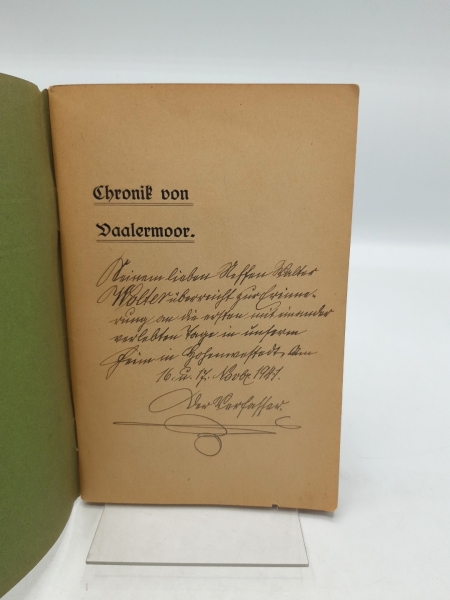 Chronik von
Vaalermoor.
Seinem lieben Neffen Walter
Wolter überreicht zur Erinne-
rung an die ersten miteinander
verlebten Tage in unserm
Heim in Hohenwestedt, am
16. u. 17. Novbr. 1941.
Der Verfasser.